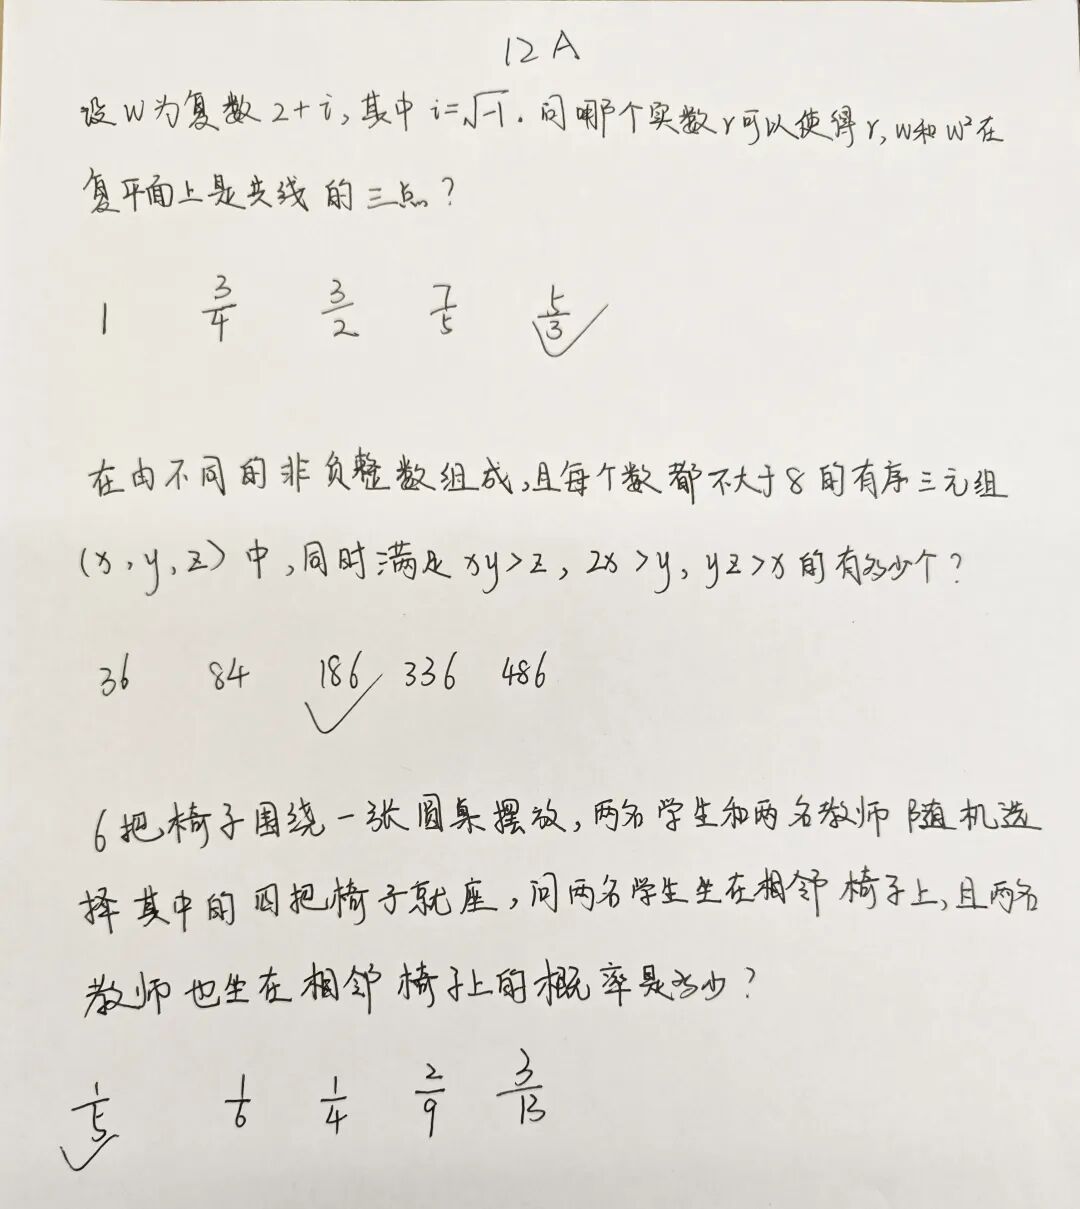 12A
设w为复数2+i,其中i=√-1.问哪个实数r可以使得r,w和w²在
复平面上是共线的三点?
1 3/4 3/2 7/5 5/3 ✓
在由不同的非负整数组成,且每个数都不大于8的有序三元组
(x,y,z)中,同时满足xy>z,2x>y,yz>x的有多少个?
36 84 186 ✓ 336 486
6把椅子围绕一张圆桌摆放,两名学生和两名教师随机选
择其中的四把椅子就座,问两名学生坐在相邻椅子上,且两名
教师也坐在相邻椅子上的概率是多少?
1/5 ✓ 1/6 1/4 2/9 3/13